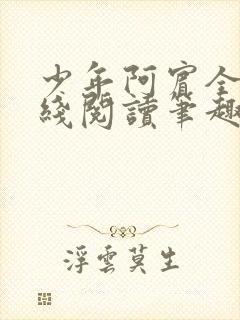 少年阿賓全
綫閱讀筆趣
浮雲莫生